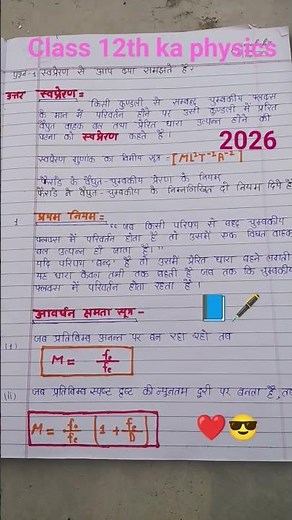 Class 12th ka physics
प्रश्न-1 स्वप्रेरण से आप क्या समझते हैं?
उत्तर स्वप्रेरण=
किसी कुण्डली से सम्बद्ध चुम्बकीय फ्लक्स
के मान में परिवर्तन होने पर उसी कुण्डली में प्रेरित
वैद्युत वाहक बल तथा प्रेरित धारा उत्पन्न होने की
घटना को स्वप्रेरण कहते है।
2026
स्वप्रेरण गुणांक का विमीय सूत्र = [ML²T⁻²A⁻²]
फैराडे के वैद्युत-चुम्बकीय प्रेरण के नियम,
फैराडे ने वैद्युत-चुम्बकीय के निम्नलिखित दो नियम दिये है
1 प्रथम नियम=
"जब किसी परिपथ से बद्ध चुम्बकीय
फ्लक्स में परिवर्तन होता है तो उसमें एक विद्युत वाहक
बल उत्पन्न हो जाता है।"
यदि परिपथ "बन्द" है तो उसमें प्रेरित धारा बहने लगती
यह धारा केवल तभी तक बहती है जब तक कि चुम्बकीय
फ्लक्स में परिवर्तन होता रहता है।
आवर्धन क्षमता सूत्र-
(i) जब प्रतिबिम्ब अनन्त पर बन रहा हो तब
M = fo/fe
(ii) जब प्रतिबिम्ब स्पष्ट दृष्टि की न्यूनतम दूरी पर बनता है, तब
M = fo/fe (1 + fe/D)